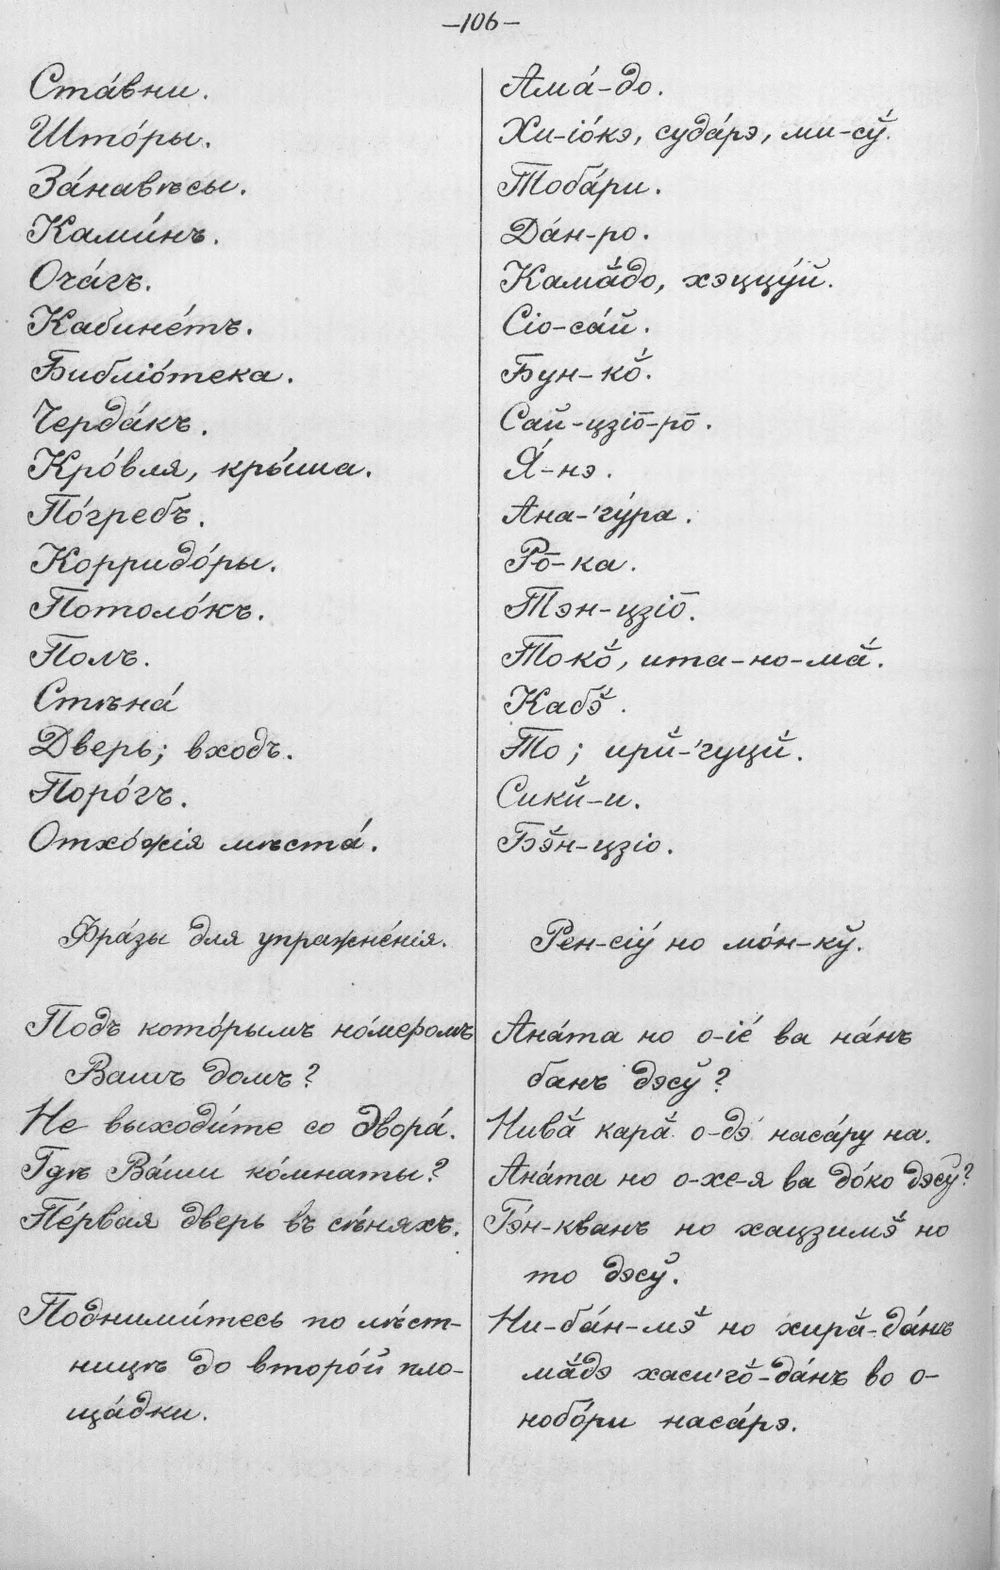 —106—
Ста́вни.
Што́ры.
За́навѣсы.
Ками́нъ.
Оча́гъ.
Кабине́тъ.
Библіо́тека.
Черда́къ.
Кро́вля, кры́ша.
По́гребъ.
Корридо́ры.
Потоло́къ.
Полъ.
Стѣна́
Дверь; входъ.
Поро́гъ.
Отхо́жія мѣста́.
Фра́зы для упражне́нія.
Подъ кото́рымъ но́меромъ
Вашъ домъ?
Не выходи́те со двора́.
Гдѣ Ва́ши ко́мнаты?
Пе́рвая дверь въ сѣ́няхъ.
Подними́тесь по лѣ́ст-
ницѣ до второ́й пло-
ща́дки.
Ама́-до.
Хи-іо́кэ, суда́рэ, ми-сў́.
Тоба́ри.
Да́н-ро.
Камӑ́до, хэццу́й.
Сіо-са́й.
Бун-ко̆́.
Сай-цзіо̄-ро̄.
Я́-нэ.
Ана-'гу́ра.
Ро̄-ка.
Тэн-цзіо̄.
Токо̆́, ита-но-мӑ́.
Кабэ̆́.
То; ирй́-'гуцй́.
Сикй́-и.
Бэ̆́н-цзіо.
Рен-сіу́ но мо́н-кў.
Ана́та но о-іе́ ва на́нъ
банъ дэсў?
Нивӑ́ карӑ́ о-дэ́ наса́ру на.
Ана́та но о-хе-я ва до́ко дэсў?
Гэ́н-кванъ но хацзимэ̆́ но
то дэсў.
Ни-ба́н-мэ̆́ но хирӑ́-да́нъ
мӑ́дэ хаси'го̆́-да́нъ во о-
нобо́ри наса́рэ.